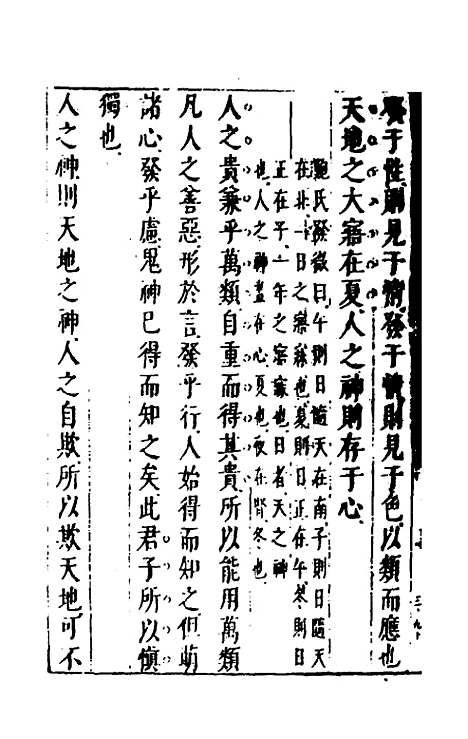 發于性則見于情發于情則見于色以類而應也
天地之大寤在夏人之神則存于心
鮑氏發微曰午則日隨天在南子則日隨天
在北一日之寤寐也夏則日正在午冬則日
正在子一年之寤寐也日者天之神
也人之神晝在心夏也夜在腎冬也
人之貴兼乎萬類自重而得其貴所以能用萬類
凡人之善惡形於言發乎行人始得而知之但萌
諸心發乎慮鬼神已得而知之矣此君子所以慎
獨也
人之神則天地之神人之自欺所以欺天地可不